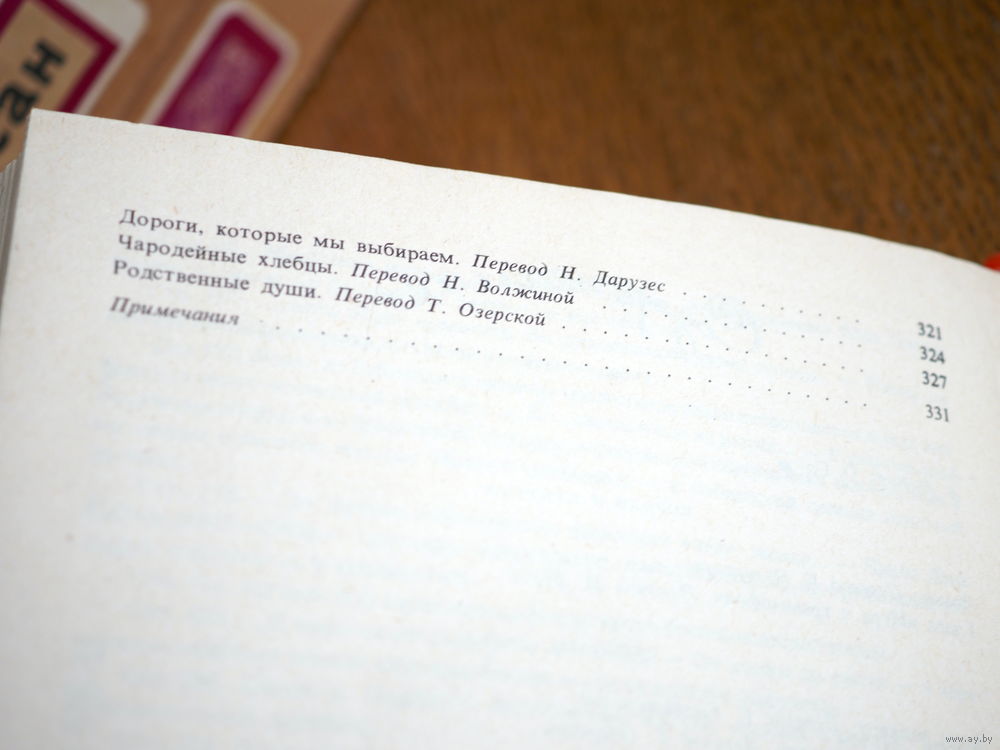 ан
Дороги, которые мы выбираем. Перевод Н. Дарузес . . . . . . . . . 321
Чародейные хлебцы. Перевод Н. Волжиной . . . . . . . . . . . . . 324
Родственные души. Перевод Т. Озерской . . . . . . . . . . . . . . 327
Примечания . . . . . . . . . . . . . . . . . . . . . . . . . 331
www.ay.by